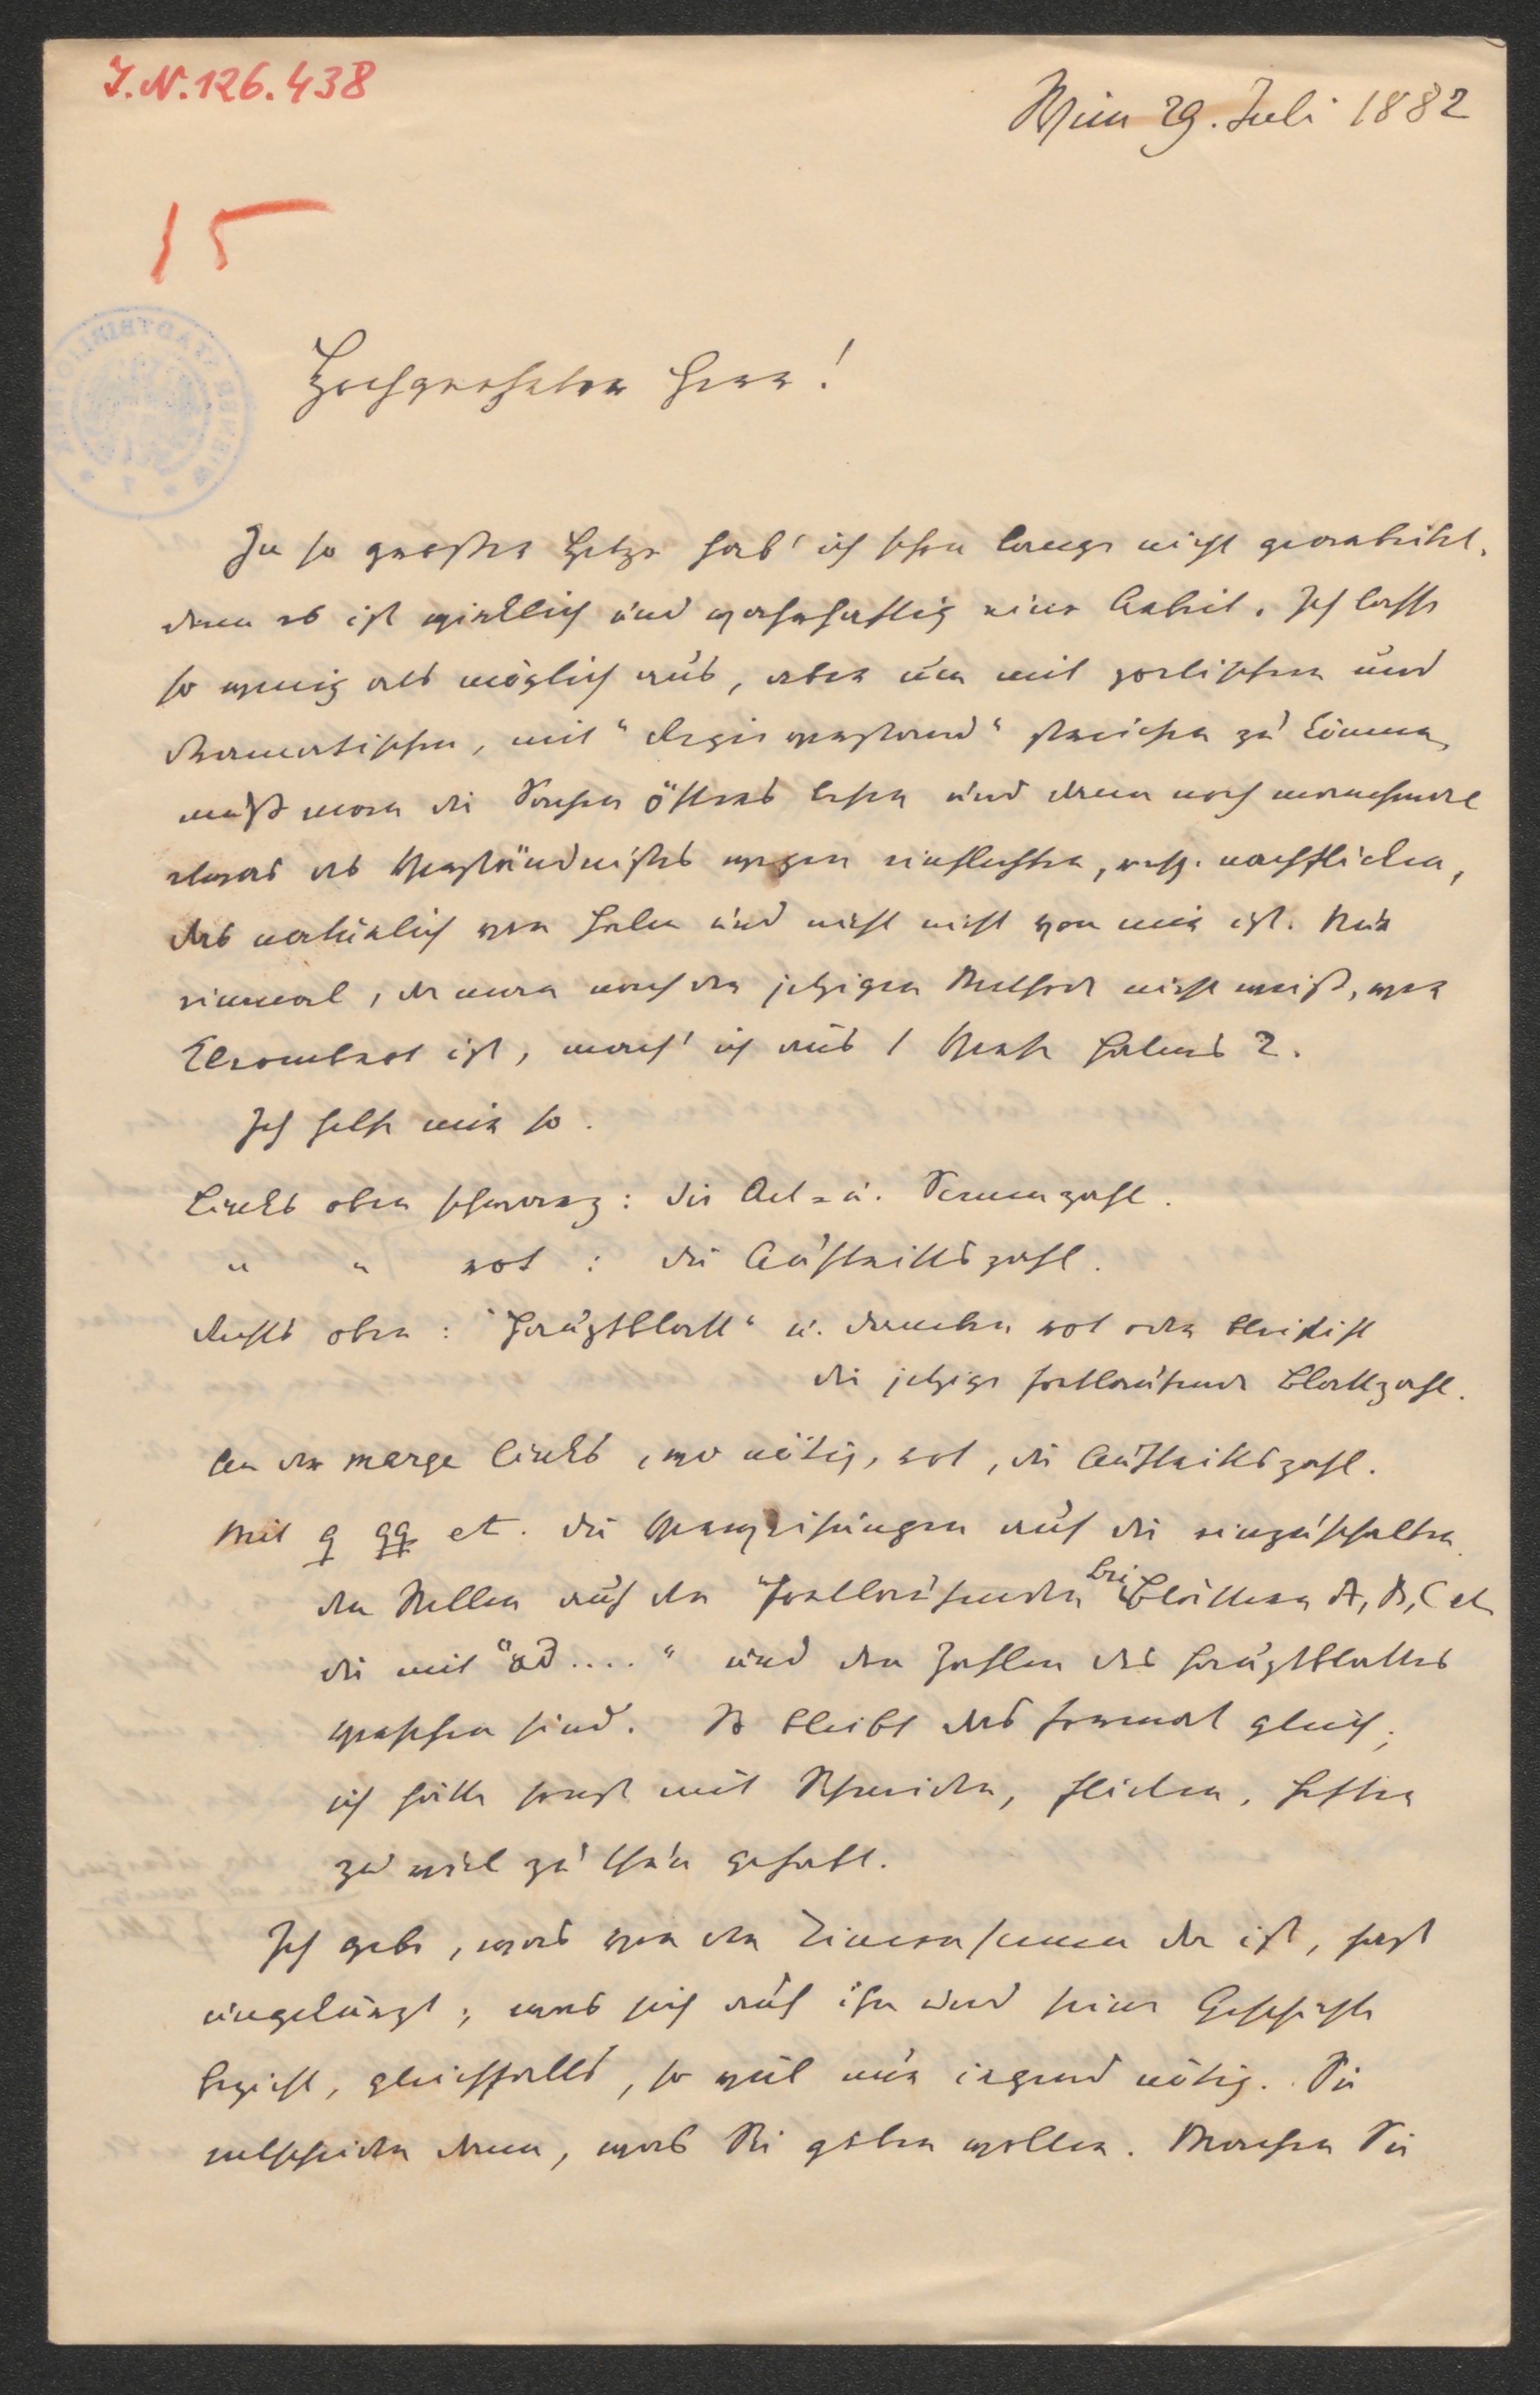 I.N.126.438
Wien 29. Juli 1882
15
Hochgeehrter Herr!
In so großer Hetze hab' ich schon lange nicht gearbeitet,
denn es ist wirklich und wahrhaftig eine Arbeit. Ich lasse
so wenig als möglich aus, aber um mit poetischem und
dramatischem, mit "Regieverstand" streichen zu können,
muß man die Sachen öfters lesen und dann noch manchmal
etwas des Verständnißes wegen einflechten, resp. nachflicken,
das natürlich von Halm und nicht von mir ist. Nur
einmal, da man nach der jetzigen Methode nicht weiß, wer
ist, mach' ich aus 1 Verse Halms 2.
Ich helfe mir so.
Links oben schwarz: die Act- u. Scenenzahl.
" " rot : die Auftrittszahl.
Rechts oben: "Hauptblatt" u. daneben rot oder Bleistift
die jetzige fortlaufende Blattzahl.
An der marge links, wo nötig, rot, die Auftrittszahl.
Mit q qq et. die Verweisungen auf die einzuschalten
den Stellen auf den "fortlaufenden Bei Blättern A, B, C etc
die mit "ad ...." und den Zahlen des Hauptblattes
versehen sind. So bleibt das Format gleich;
ich hätte sonst mit Schneiden, flicken, heften
zu viel zu thun gehabt.
Ich gebe, was von den da ist, fast
ungekürzt; was sich auf ihn und seine Geschichte
bezieht, gleichfalls, so weit nur irgend nötig. Sie
entscheiden dann, was Sie geben wollen. Machen Sie